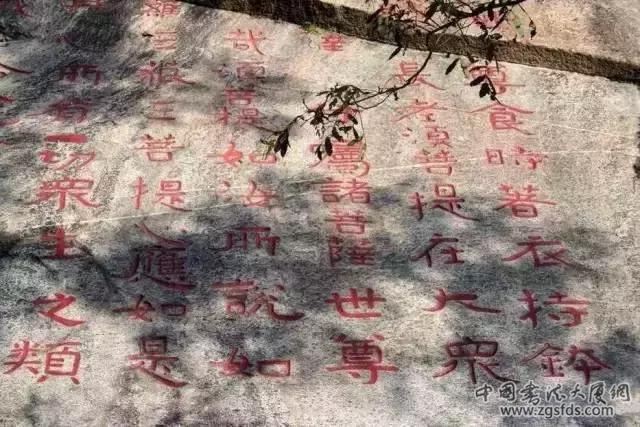 尊食時著衣持鉢
長老須菩提在大衆
嘱諸菩薩世尊
哉須菩提如汝所說如
羅三藐三菩提心應如是
所有一切衆生之類
中国書法大厦網
www.zgsfds.com